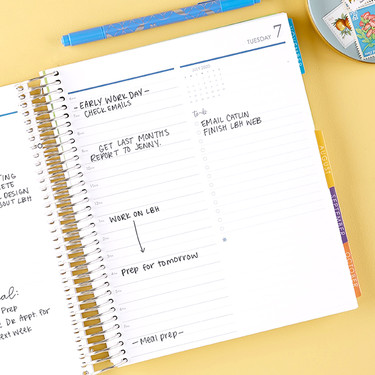 TUESDAY 7
- EARLY WORK DAY -
CHECK EMAILS
GET LAST MONTHS
REPORT TO JENNY.
WORK ON LBH
Prep for tomorrow
- Meal prep -
To do
EMAIL CATLIN
FINISH LBH WEB
AUGUST
SEPTEMBER
OCTOBER
DESIGN
BOUT LBH
al:
Prep
Dr Appt for
ext Week